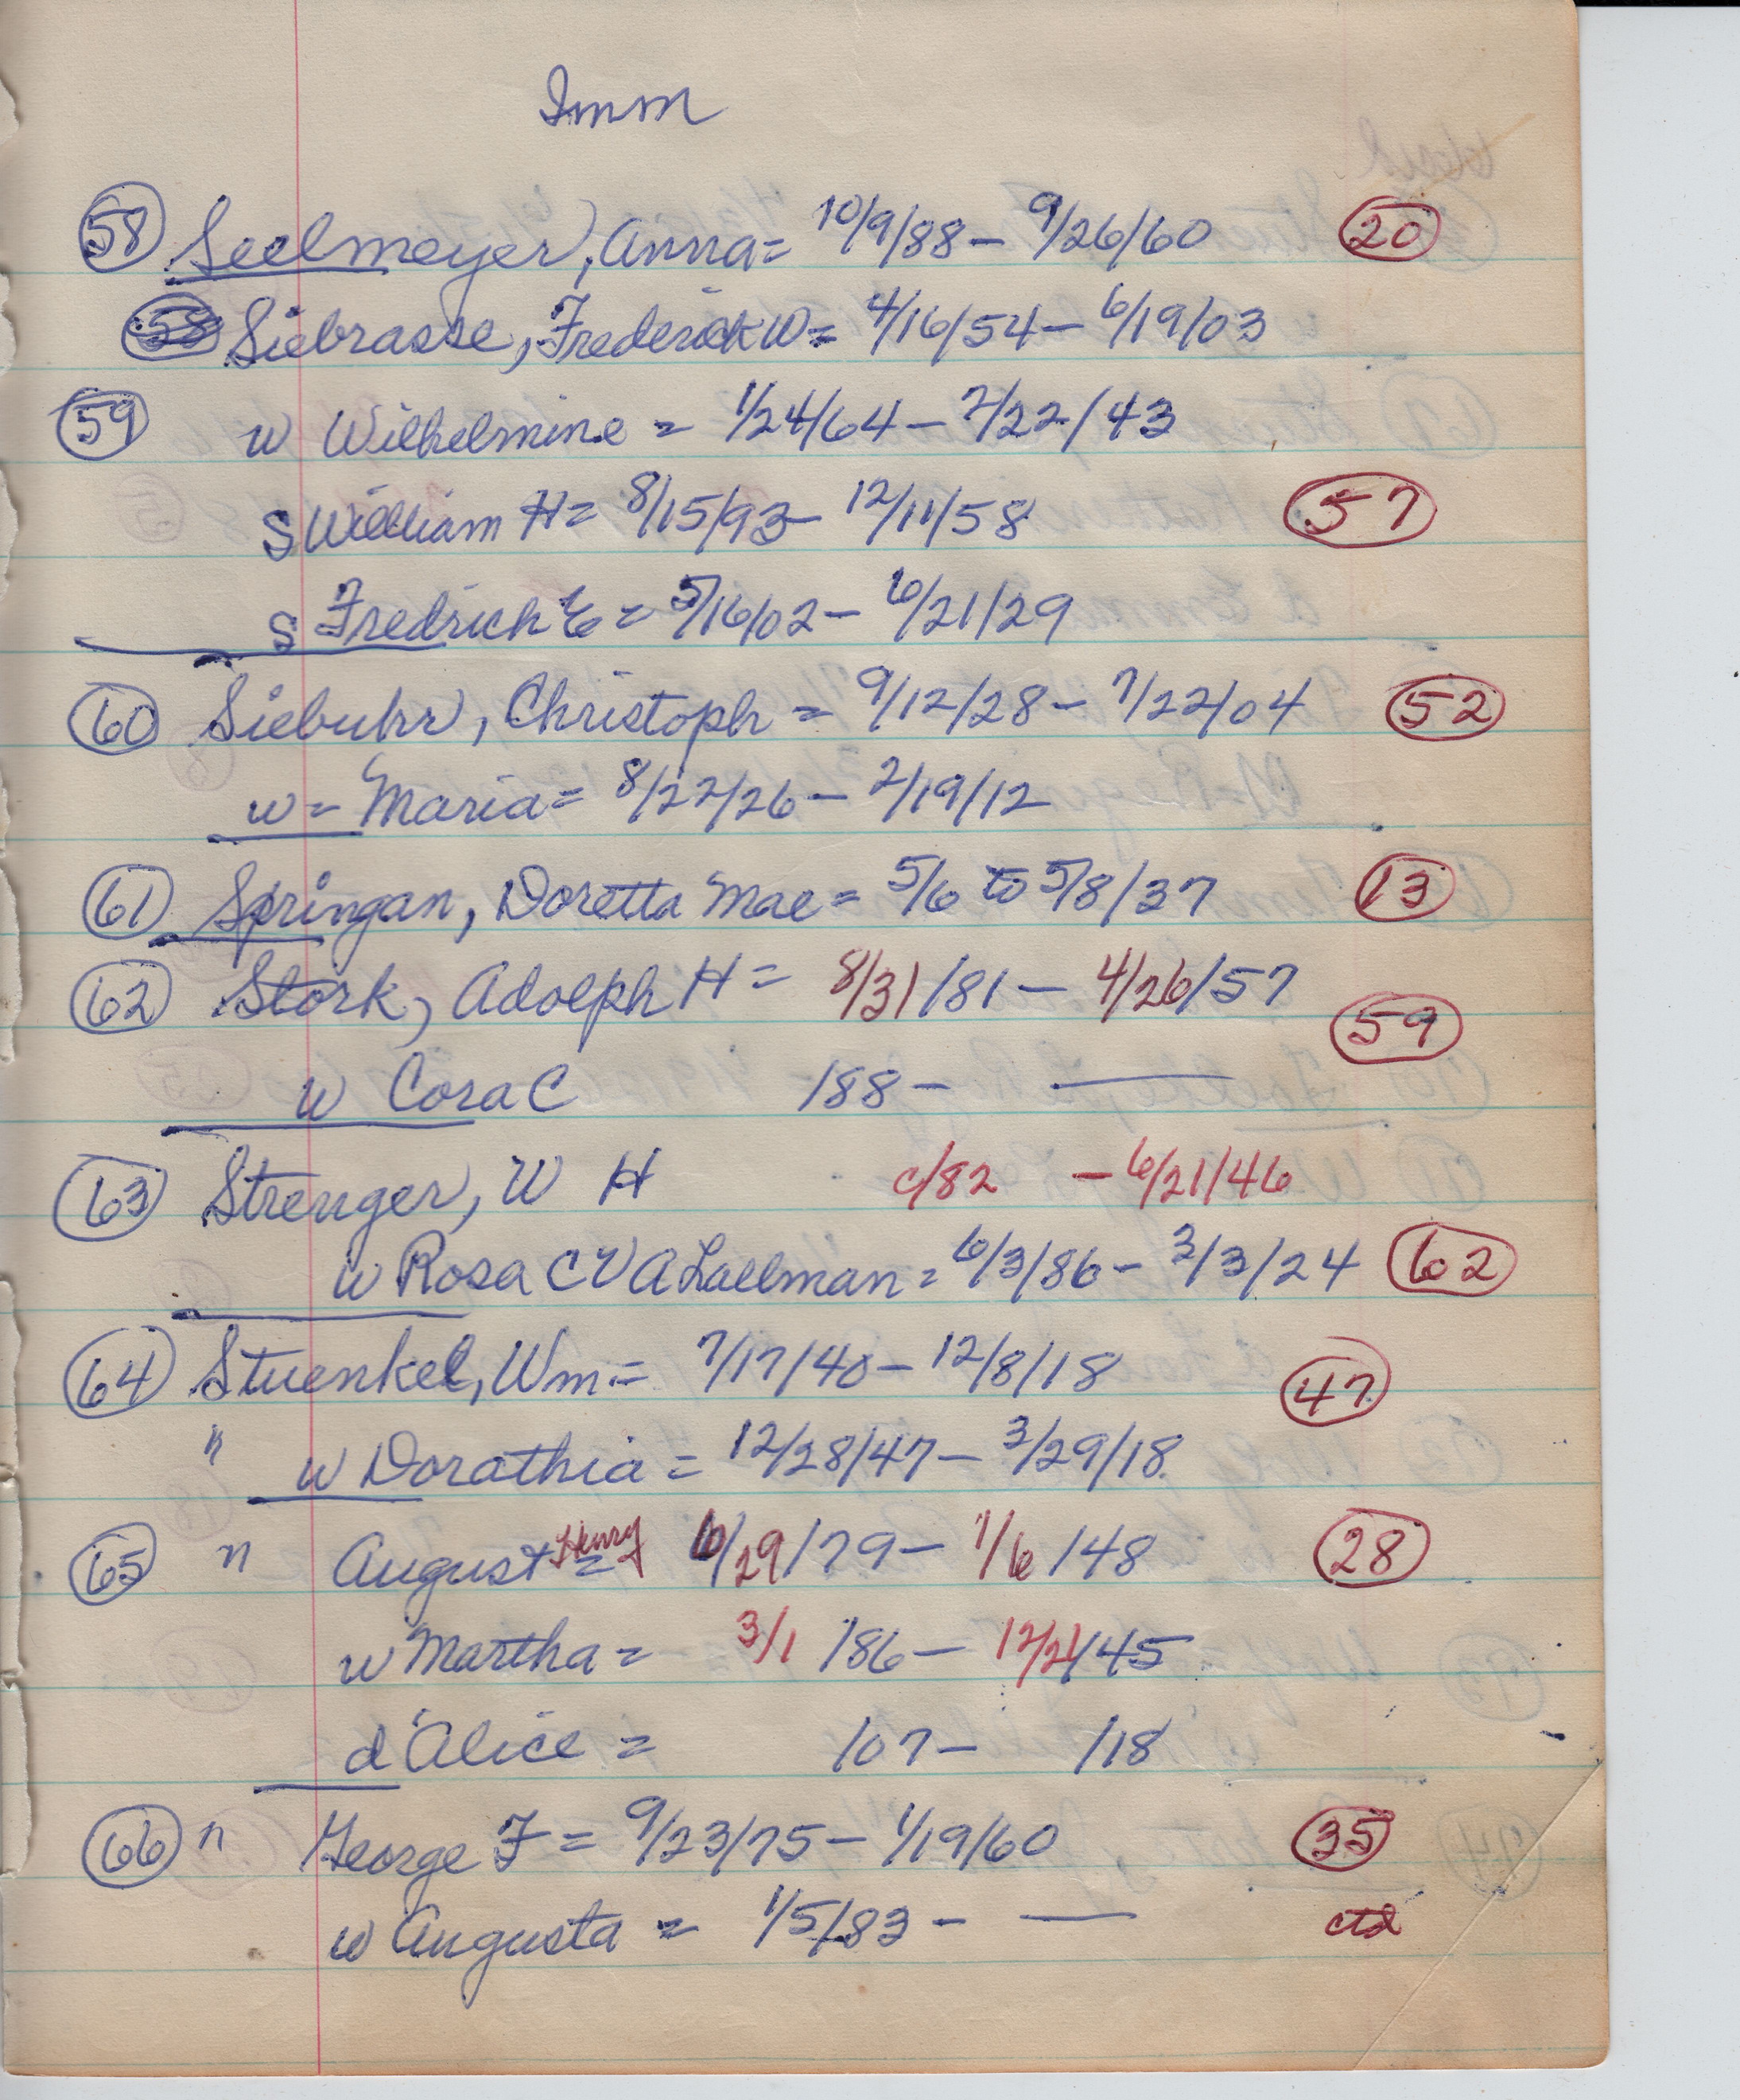 Imm
58 Seelmeyer, Anna = 10/9/88 - 9/26/60 20
58 Siebrasse, Frederick W = 4/16/54 - 6/19/03
59 w Wilhelmine = 1/24/64 - 7/22/43
S William H = 8/15/93 - 12/11/58 57
S Fredrich E = 5/16/02 - 6/21/29
60 Siebuhr, Christoph = 9/12/28 - 7/22/04 52
w = Maria = 8/22/26 - 2/19/12
61 Springan, Doretta Mae = 5/6 to 5/8/37 13
62 Stork, Adolph H = 8/31/81 - 4/26/57
59
w Cora C 188 - —
63 Strenger, W H c/82 - 6/21/46
w Rosa C V A Lallman = 6/3/86 - 3/3/24 62
64 Stuenkel, Wm = 7/17/40 - 12/8/18 47
" w Dorathia = 12/28/47 - 3/29/18
65 " August Henry = 6/29/79 - 1/6/48 28
w Martha = 3/1 /86 - 12/21/45
d Alice = /07 - /18
66 " George F = 9/23/75 - 1/19/60 35
w Augusta = 1/5/83 - — ctd